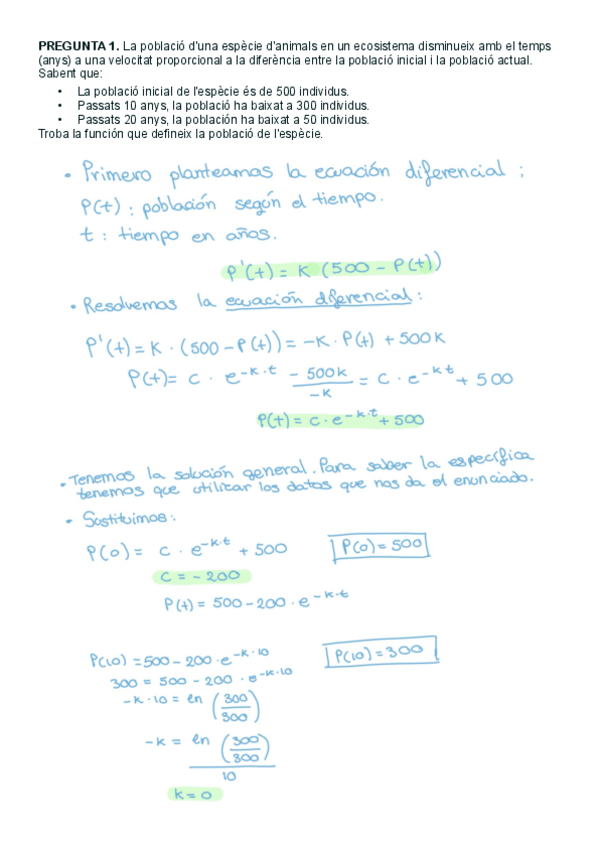 PREGUNTA 1. La població d'una espècie d'animals en un ecosistema disminueix amb el temps
(anys) a una velocitat proporcional a la diferència entre la població inicial i la població actual.
Sabent que:
• La població inicial de l'espècie és de 500 individus.
• Passats 10 anys, la població ha baixat a 300 individus.
• Passats 20 anys, la población ha baixat a 50 individus.
Troba la función que defineix la població de l'espècie.
• Primero planteamos la ecuación diferencial :
P(t) : población según el tiempo.
t : tiempo en años.
P'(t) = K (500 - P(t))
• Resolvemos la ecuación diferencial :
P'(t) = K · (500 - P(t)) = -K · P(t) + 500K
P(t) = C · e^(-K·t) - 500K/-K = C · e^(-Kt) + 500
P(t) = C · e^(-K·t) + 500
• Tenemos la solución general. Para saber la específica
tenemos que utilizar los datos que nos da el enunciado.
• Sustituimos :
P(0) = C · e^(-K·t) + 500 P(0) = 500
C = - 200
P(t) = 500 - 200 · e^(-K·t)
P(10) = 500 - 200 · e^(-K·10) P(10) = 300
300 = 500 - 200 · e^(-K·10)
-K · 10 = ln (300/300)
-K = ln (300/300) / 10
K = 0